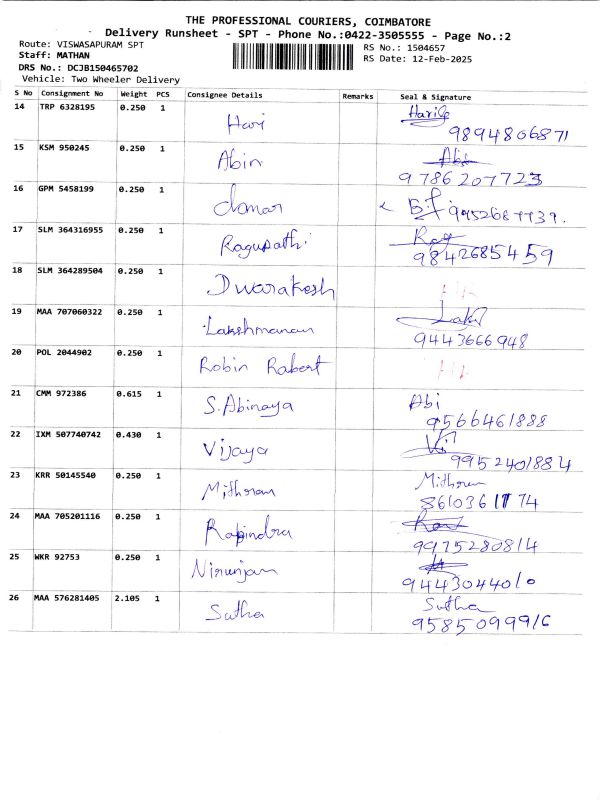 THE PROFESSIONAL COURIERS, COIMBATORE
Delivery Runsheet - SPT - Phone No.:0422-3505555 - Page No.:2
Route: VISWASAPURAM SPT
RS No.: 1504657
Staff: MATHAN
RS Date: 12-Feb-2025
DRS No.: DCJB150465702
Vehicle: Two Wheeler Delivery
S No Consignment No Weight PCS Consignee Details Remarks Seal & Signature
14 TRP 6328195 0.250 1 Hari
9894806871
15 KSM 950245 0.250 1 Abin Abi
9786207723
16 GPM 5458199 0.250 1
17 SLM 364316955 0.250 1 Ragupathi
9842685459
18 SLM 364289504 0.250 1 Dwarakesh
19 MAA 707060322 0.250 1 Lakshmanan
9443666948
20 POL 2044902 0.250 1 Robin Rabert
21 CMM 972386 0.615 1 S.Abinaya Abi
9566461888
22 IXM 507740742 0.430 1 Vijaya
9952401884
23 KRR 50145540 0.250 1 Mithran Mithran
8610361174
24 MAA 705201116 0.250 1 Rabindra
9975280814
25 WKR 92753 0.250 1 Niranjan
9443044010
26 MAA 576281405 2.105 1 Sutha Sutha
9585099916